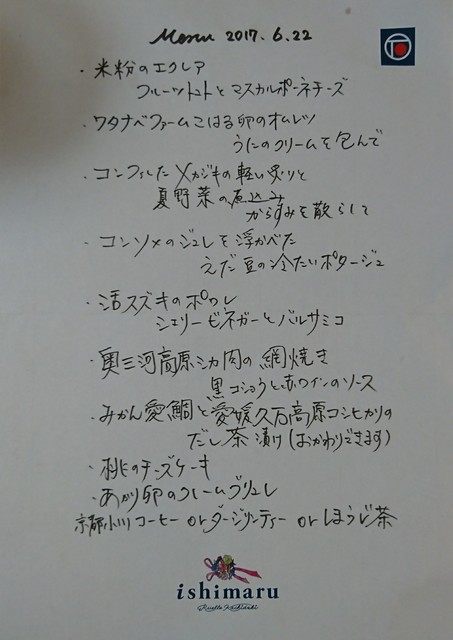 Menu 2017.6.22
・米粉のエクレア
フルーツトマトとマスカルポーネチーズ
・ワタナベファームこはる卵のオムレツ
うにのクリームを包んで
・コンフィしたメカジキの軽い炙りと
夏野菜の煮込み
からすみを散らして
・コンソメのジュレを浮かべた
えだ豆の冷たいポタージュ
・活スズキのポワレ
シェリービネガーとバルサミコ
・奥三河高原シカ肉の網焼き
黒コショウと赤ワインのソース
・みかん愛鯛と愛媛久万高原コシヒカリの
だし茶漬け(おかわりできます)
・桃のチーズケーキ
・あかり卵のクレームブリュレ
京都小川コーヒー or ダージリンティー or ほうじ茶
ishimaru